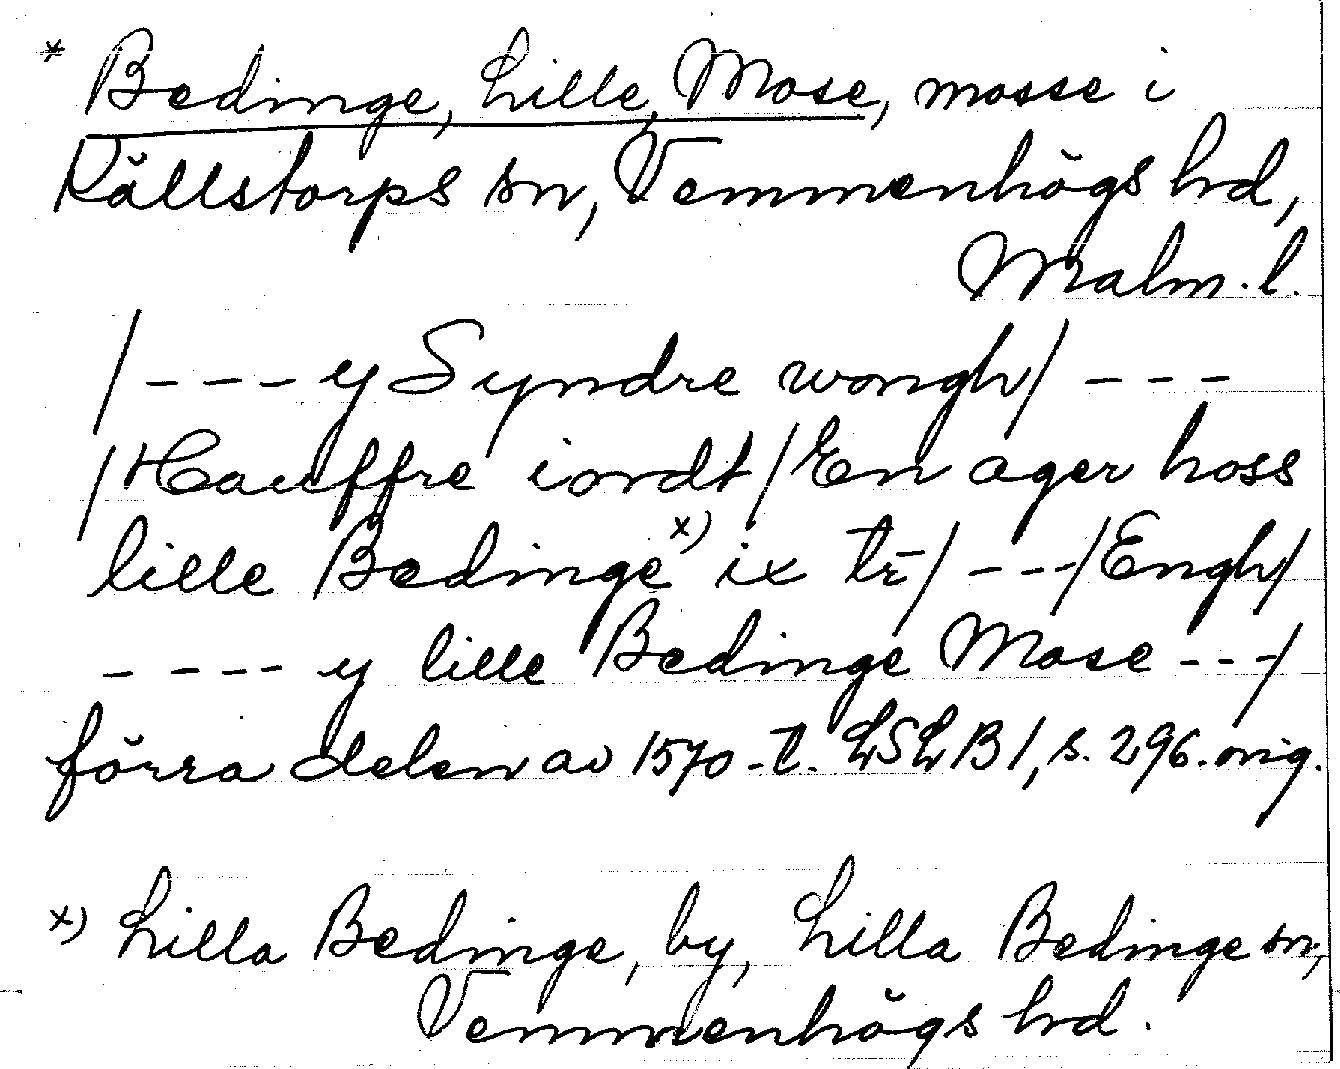 * Bedinge, Lille, Mose, mosse i
Källstorps sn, Vemmenhögs hd,
Malm. l.
/ - - - y Syndre wongh / - - -
/ Hauffre iordt / En ager hoss
lille Bedinge x) ix tr / - - - / Engh /
- - - - y lille Bedinge Mose - - - /
förra delen av 1570-t. LSLB 1, s. 296. orig.
x) Lilla Bedinge, by, Lilla Bedinge sn,
Vemmenhögs hd.